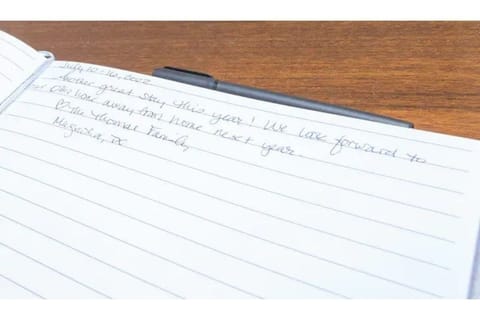 July 10-16, 2022
Another great stay this year! We look forward to
our home away from home next year.
♡ The Thomas Family,